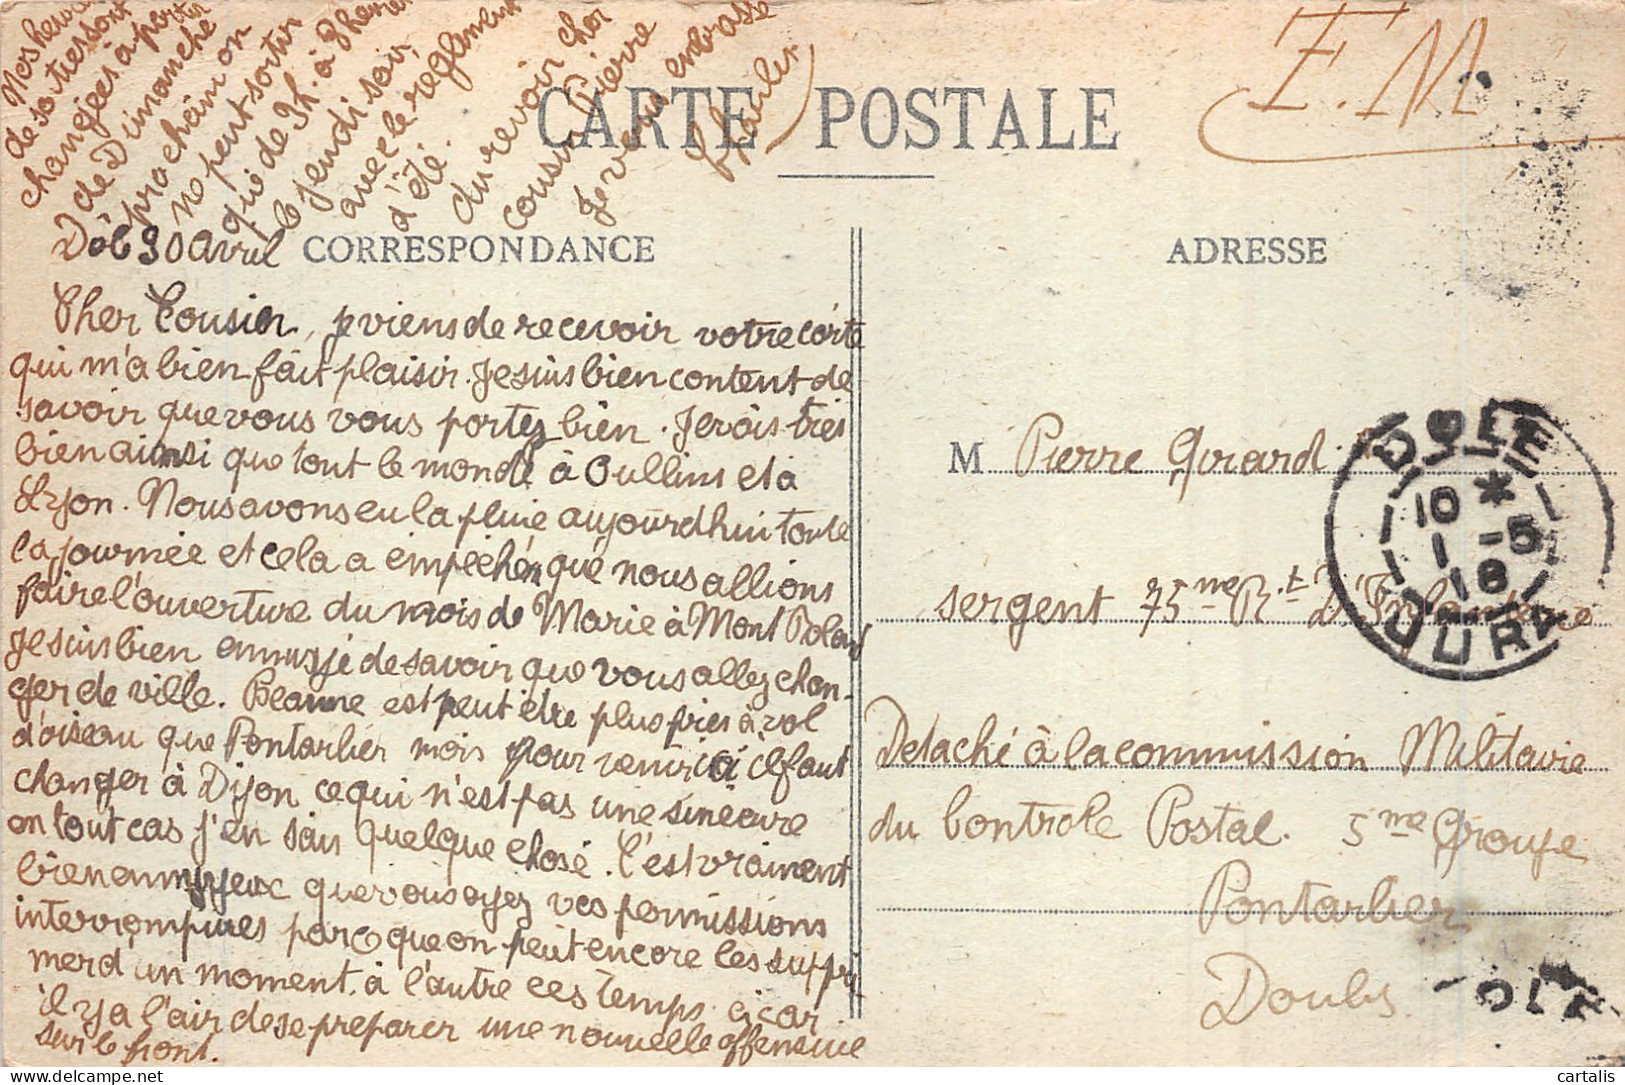 F.M
CARTE POSTALE
CORRESPONDANCE
ADRESSE
Dôle 30 Avril
Cher Cousin, je viens de recevoir votre carte
qui m'a bien fait plaisir. Je suis bien content de
savoir que vous vous portez bien. Je vais très
bien ainsi que tout le monde à Oullins et à
Lyon. Nous avons eu la pluie aujourd'hui toute
la journée et cela a empêché que nous allions
faire l'ouverture du mois de Marie à Mont Roland
Je suis bien ennuyé de savoir que vous allez chan-
ger de ville. Beaune est peut être plus près à vol
d'oiseau que Pontarlier mais pour venir ici il faut
changer à Dijon ce qui n'est pas une sinécure
en tout cas j'en sais quelque chose. C'est vraiment
bien ennuyeux que vous ayez vos permissions
interrompues parce que on peut encore les suppri
merd'un moment à l'autre ces temps ci car
il y a l'air de se préparer une nouvelle offensive
sur le front.
Nos heures
de sorties sont
changées à partir
de Dimanche
prochain on
ne peut sortir
que de 7h. à 8 heures
le jeudi soir
avec le règlement
d'été.
Au revoir cher
cousin Pierre
Je vous embrasse
Charles
M Pierre Girard
sergent 75me R.t D'Infanterie
Detaché à la commission Militaire
du Controle Postal. 5me Groupe
Pontarlier
Doubs
DOLE
10 *
1 -5
18
JURA
OLE
cartalis